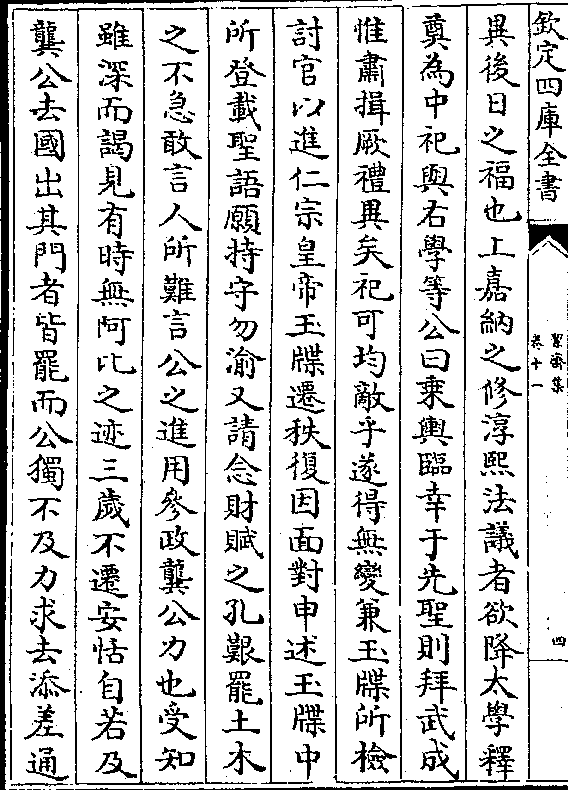 欽定四庫全書
絜齋集
卷十一
四
異後日之福也上嘉納之修淳熙法議者欲降太學釋
奠為中祀與右學等公曰乗輿臨幸于先聖則拜武成
惟肅揖厥禮異矣祀可均敵乎遂得無變兼玉牒所檢
討官以進仁宗皇帝玉牒遷秩復因面對申述玉牒中
所登載聖語願持守勿渝又請念財賦之孔艱罷土木
之不急敢言人所難言公之進用參政龔公力也受知
雖深而謁見有時無阿比之迹三歲不遷安恬自若及
龔公去國出其門者皆罷而公獨不及力求去添差通